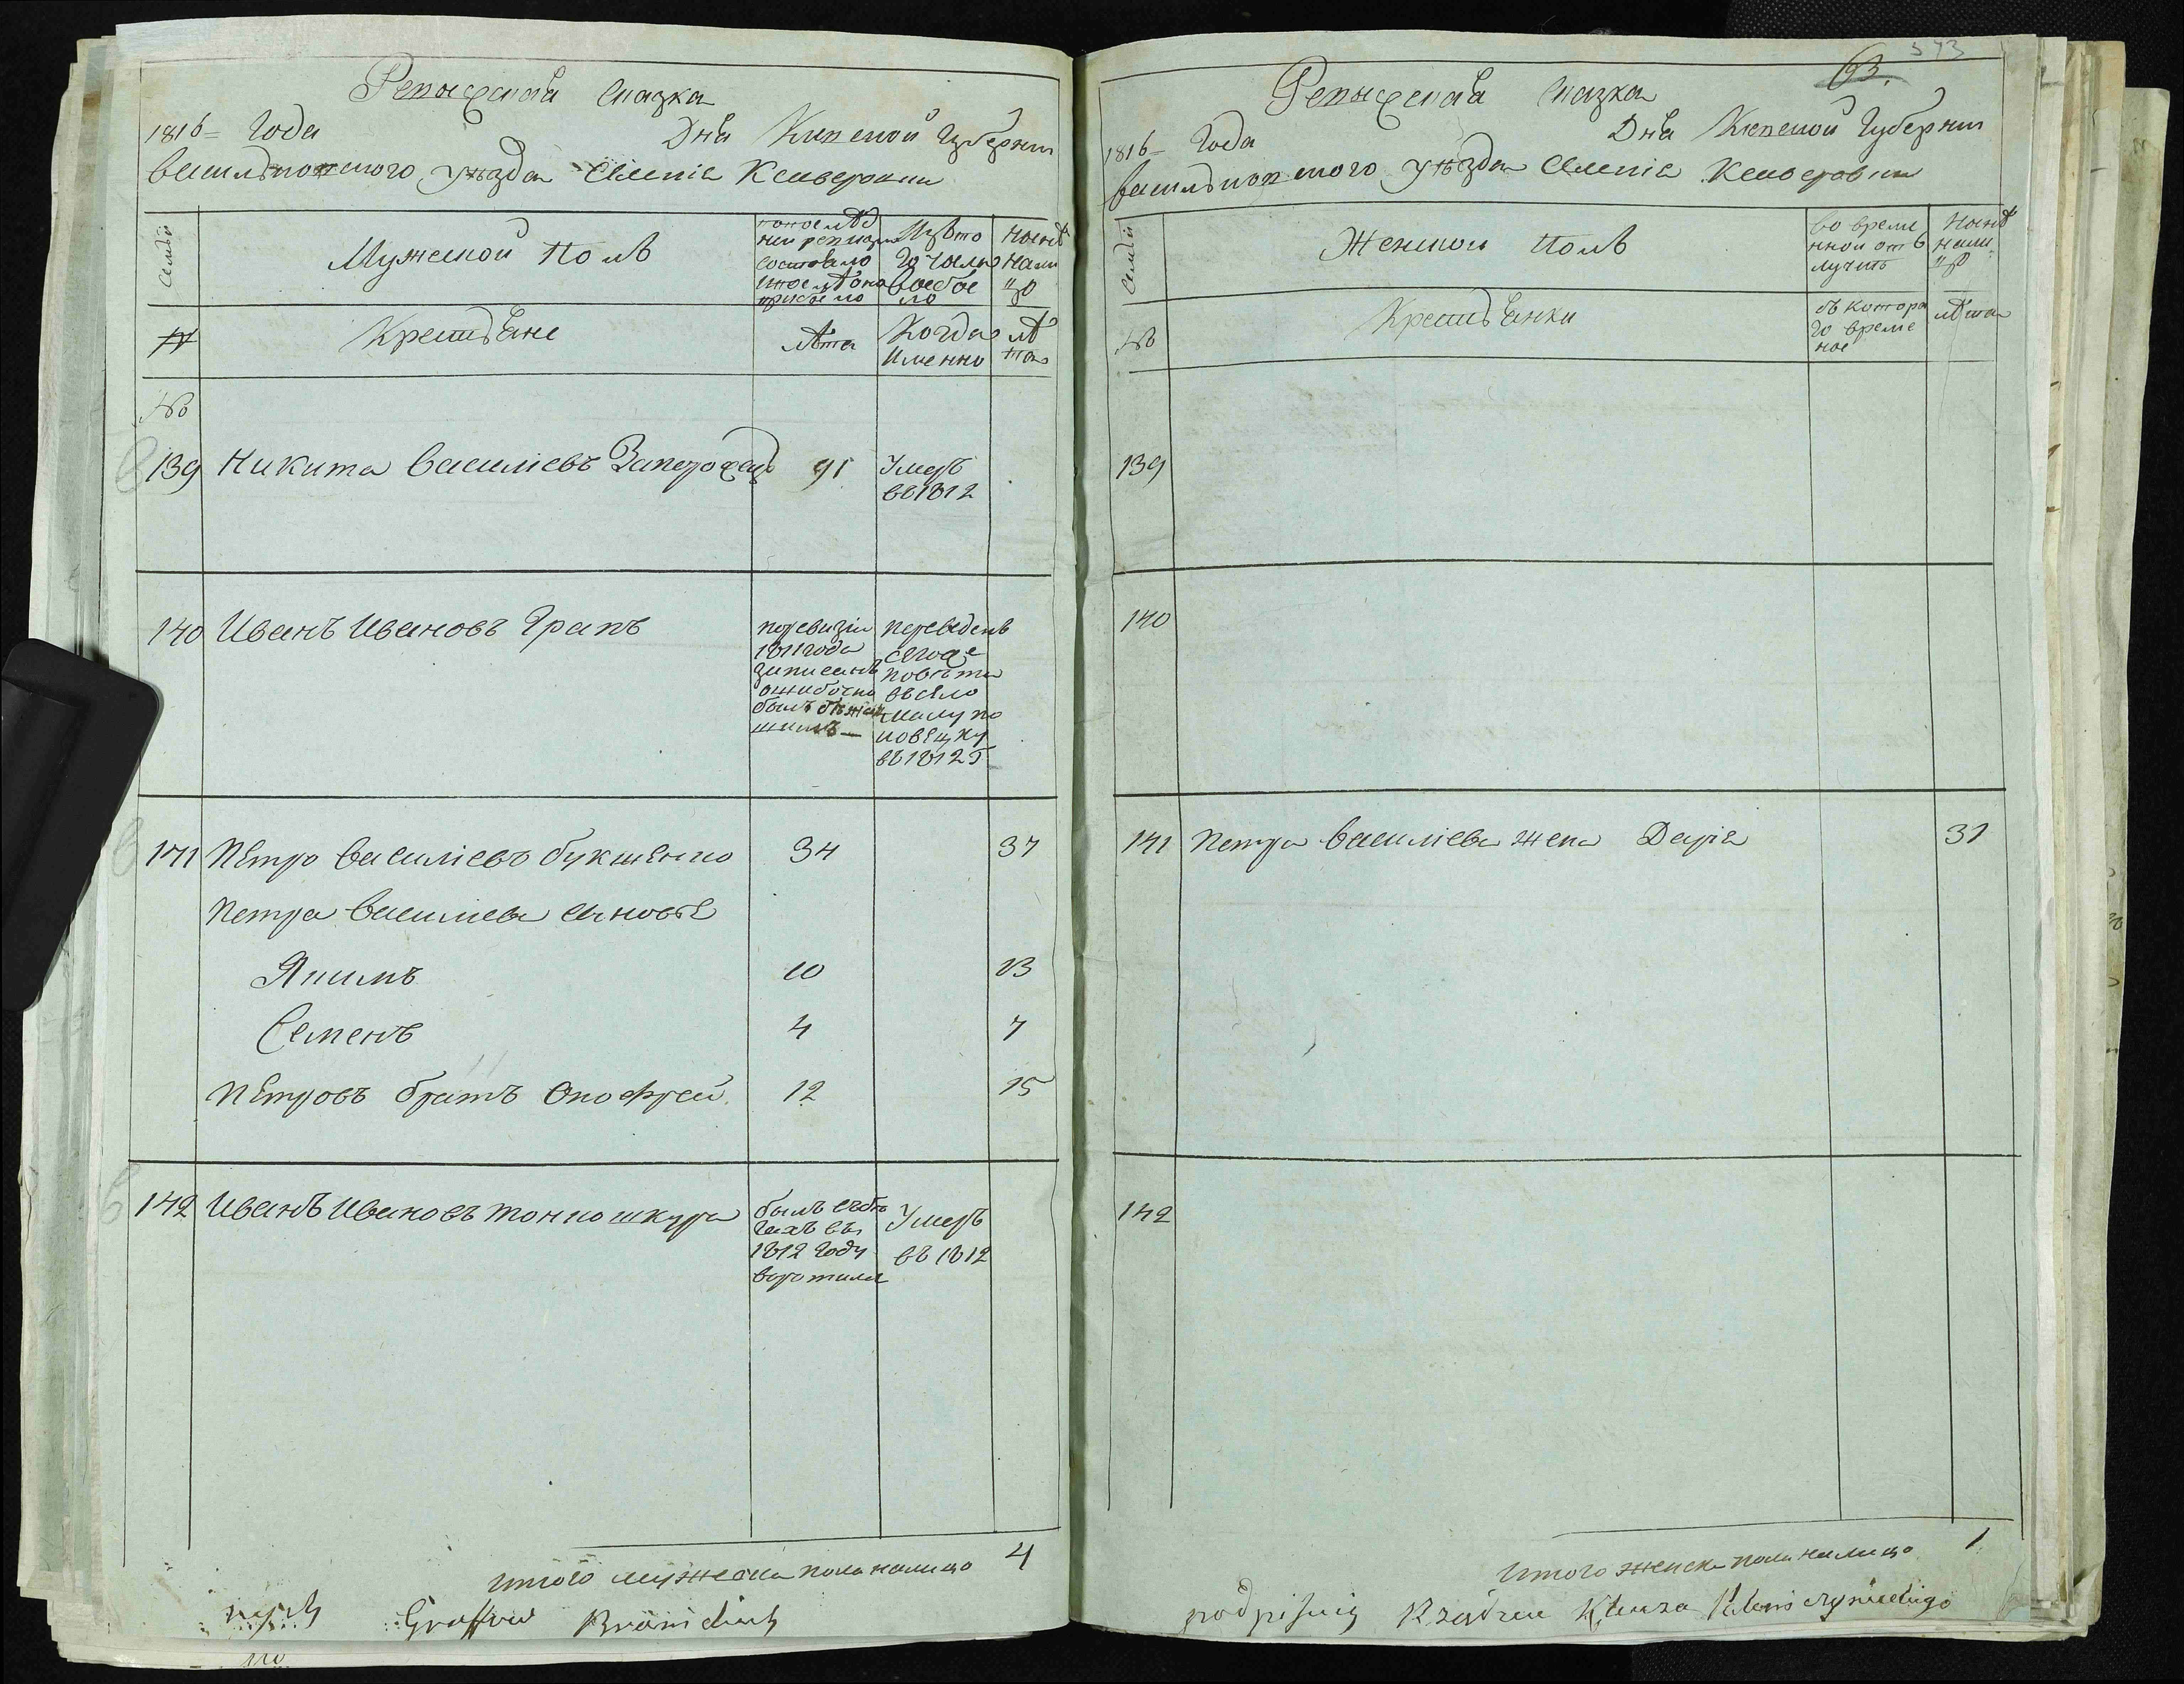 Ревизская Сказка
1816 = Года Дня Киевской Губернии
васильковского уѣзда Селенія Ксаверовки
Семьи
Мужеской Полъ
По послѣд
ней ревизіи
состояло
Изъ то
го числа
выбы
ло
Нынѣ
нали
цо
Крестьяне
лѣта
Когда
Именно
лѣ
та
№
139 Никита василіевъ Запорожецъ 91 Умеръ
въ 1812
140 Иванъ Ивановъ Грапъ
поревизіи
1811 года
записанъ
ошибочно
былъ бѣжав
шимъ —
переведенъ
сегоже
повѣта
въ село
малу по
ловецку
въ 1812 г
141 Петро василіевъ букшенко 34 37
Петра василіева сыновье
Якимъ 10 13
Семенъ 4 7
Петровъ братъ Онофрей 12 15
142 Иванъ Ивановъ тонкошкура
былъ въбѣ
гахъ въ
1812 году
воротился
Умеръ
въ 1812
итого мужеска пола налицо 4
Graffow Branickich
543
93.
Ревизская Сказка
1816 = Года Дня Киевской Губернии
васильковского уѣзда Селенія Ксаверовки
Семьи
Женской Полъ
Во време
нной от
лучкѣ
Нынѣ
нали
цо
№
Крестьянки
съ котора
го време
ное
лѣта
139
140
141 Петра василіева жена Дарія 31
142
Итого женска пола налицо 1
podpisuię Rządzca Klucza